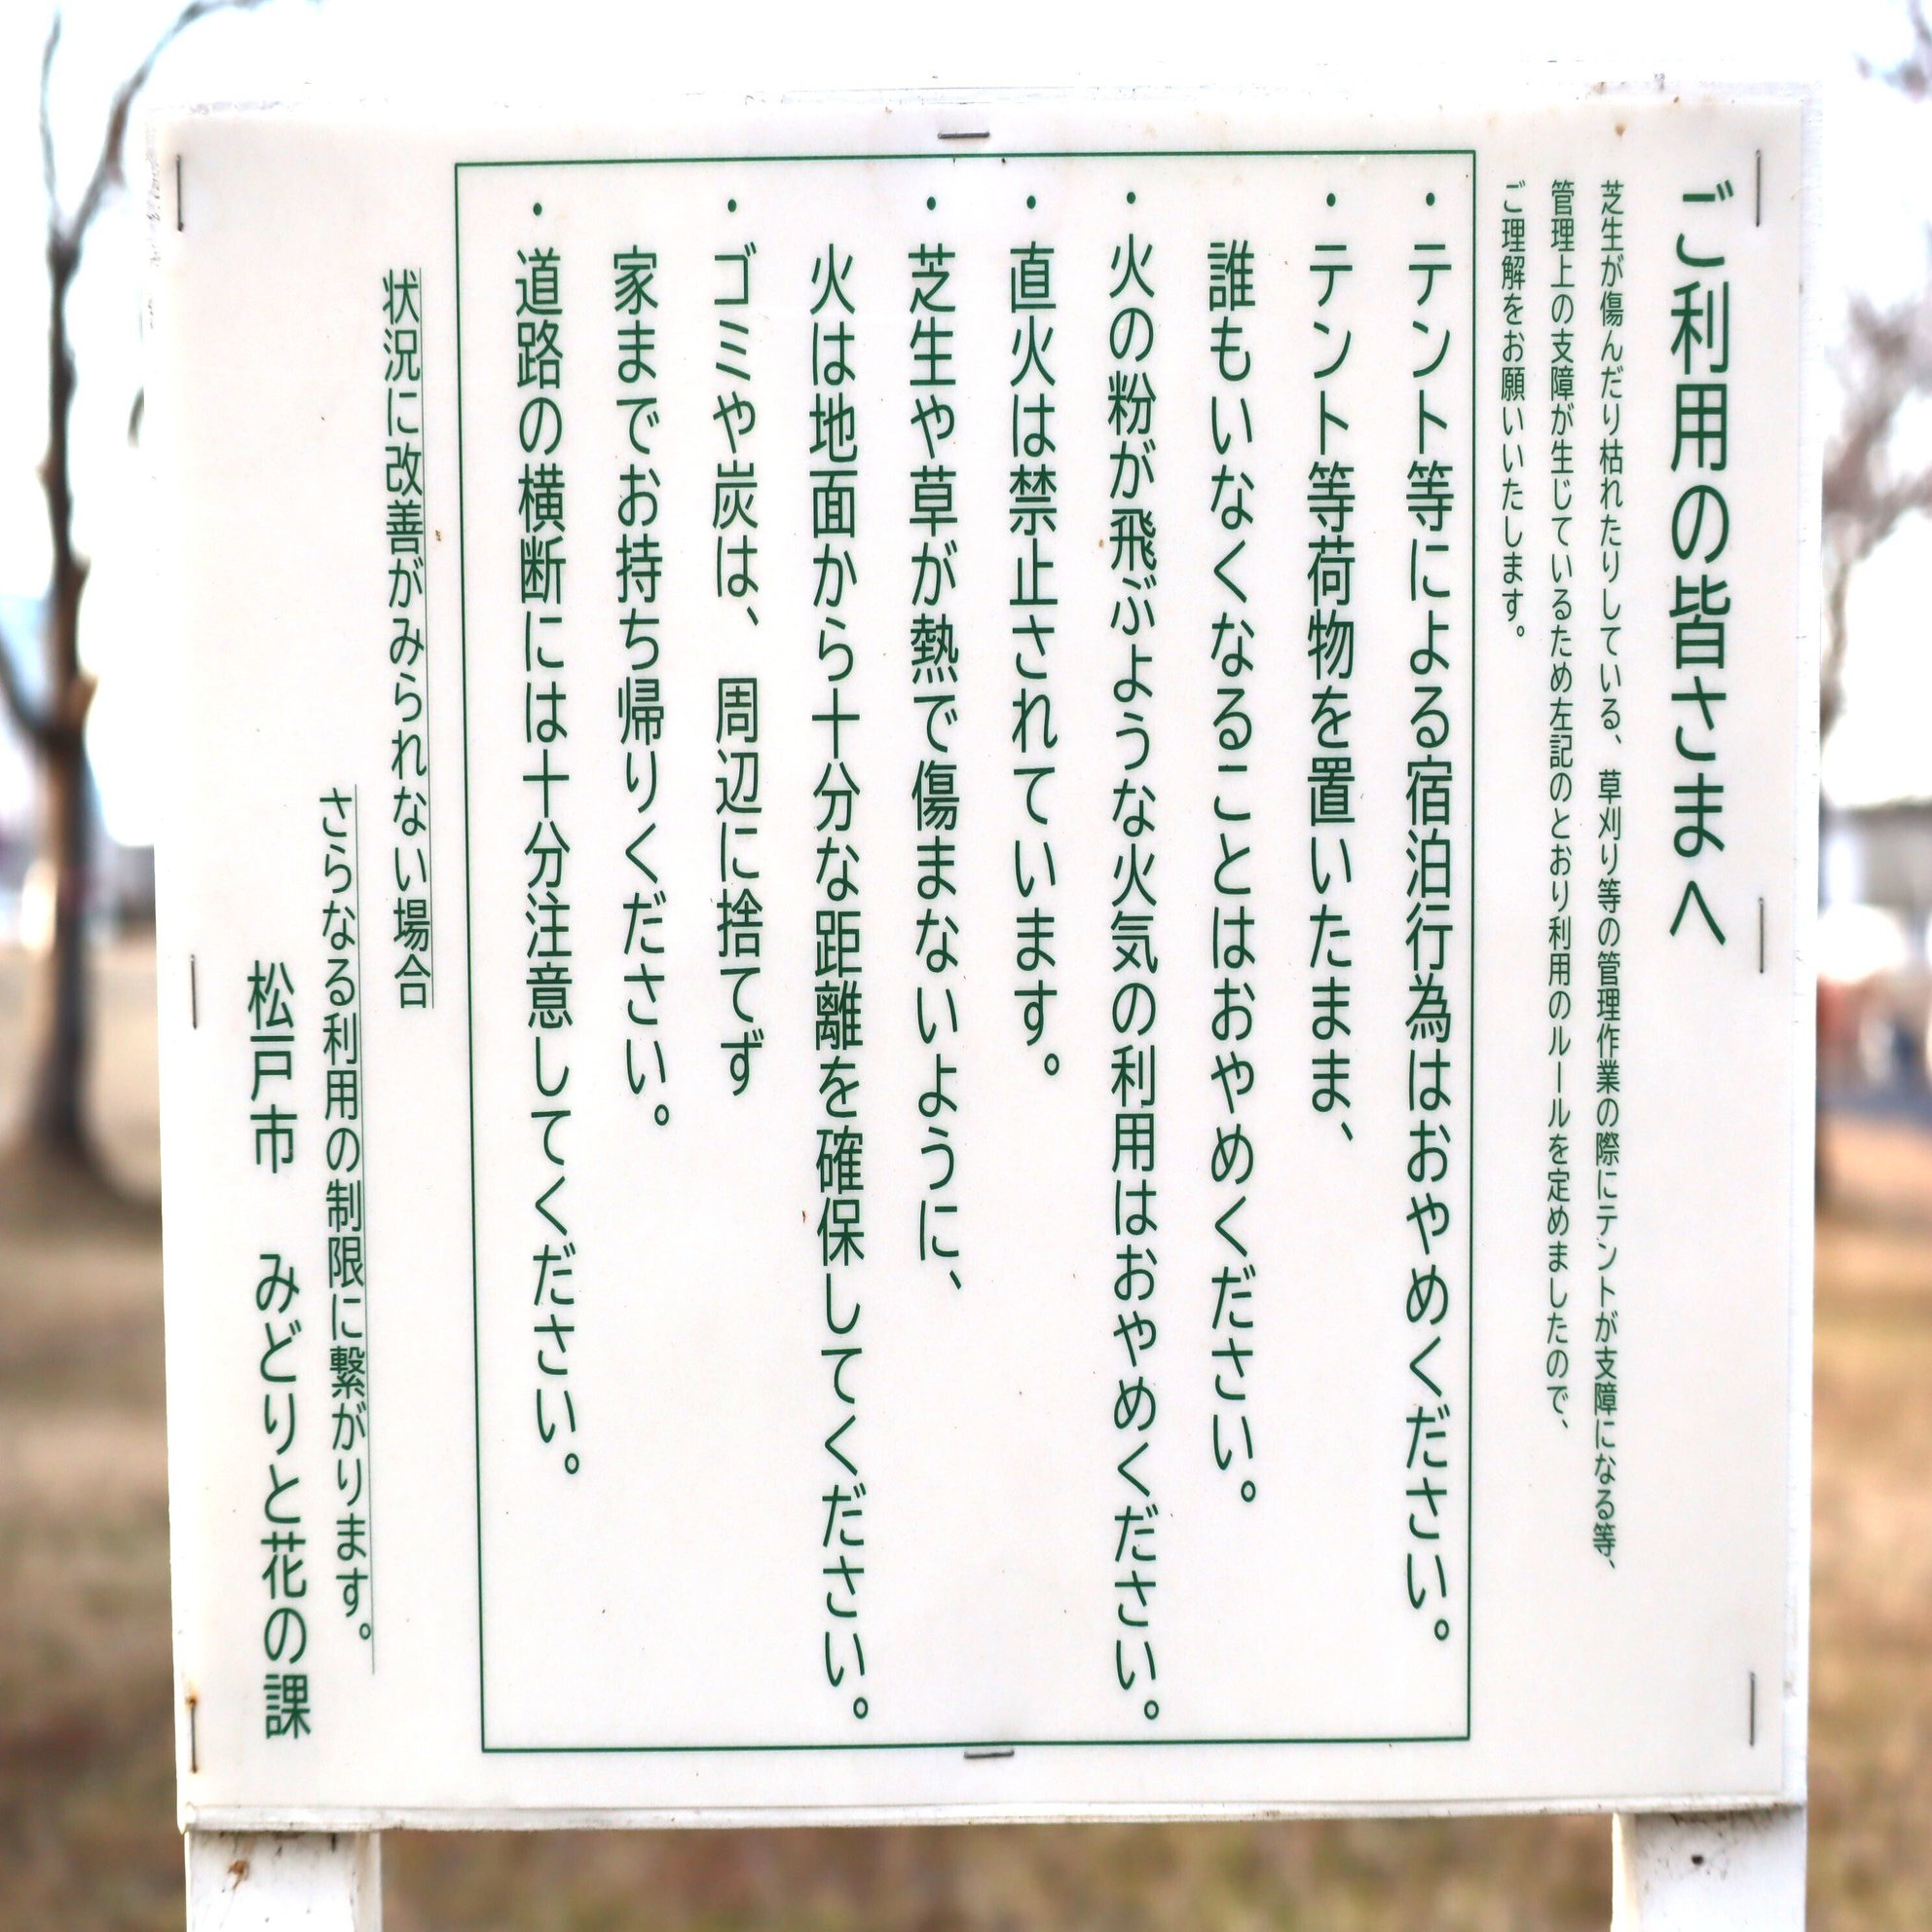 ご利用の皆さまへ
芝生が傷んだり枯れたりしている、草刈り等の管理作業の際にテントが支障になる等、
管理上の支障が生じているため左記のとおり利用のルールを定めましたので、
ご理解をお願いいたします。
・テント等による宿泊行為はおやめください。
・テント等荷物を置いたまま、
誰もいなくなることはおやめください。
・火の粉が飛ぶような火気の利用はおやめください。
・直火は禁止されています。
・芝生や草が熱で傷まないように、
火は地面から十分な距離を確保してください。
・ゴミや炭は、周辺に捨てず
家までお持ち帰りください。
・道路の横断には十分注意してください。
状況に改善がみられない場合
さらなる利用の制限に繋がります。
松戸市　みどりと花の課